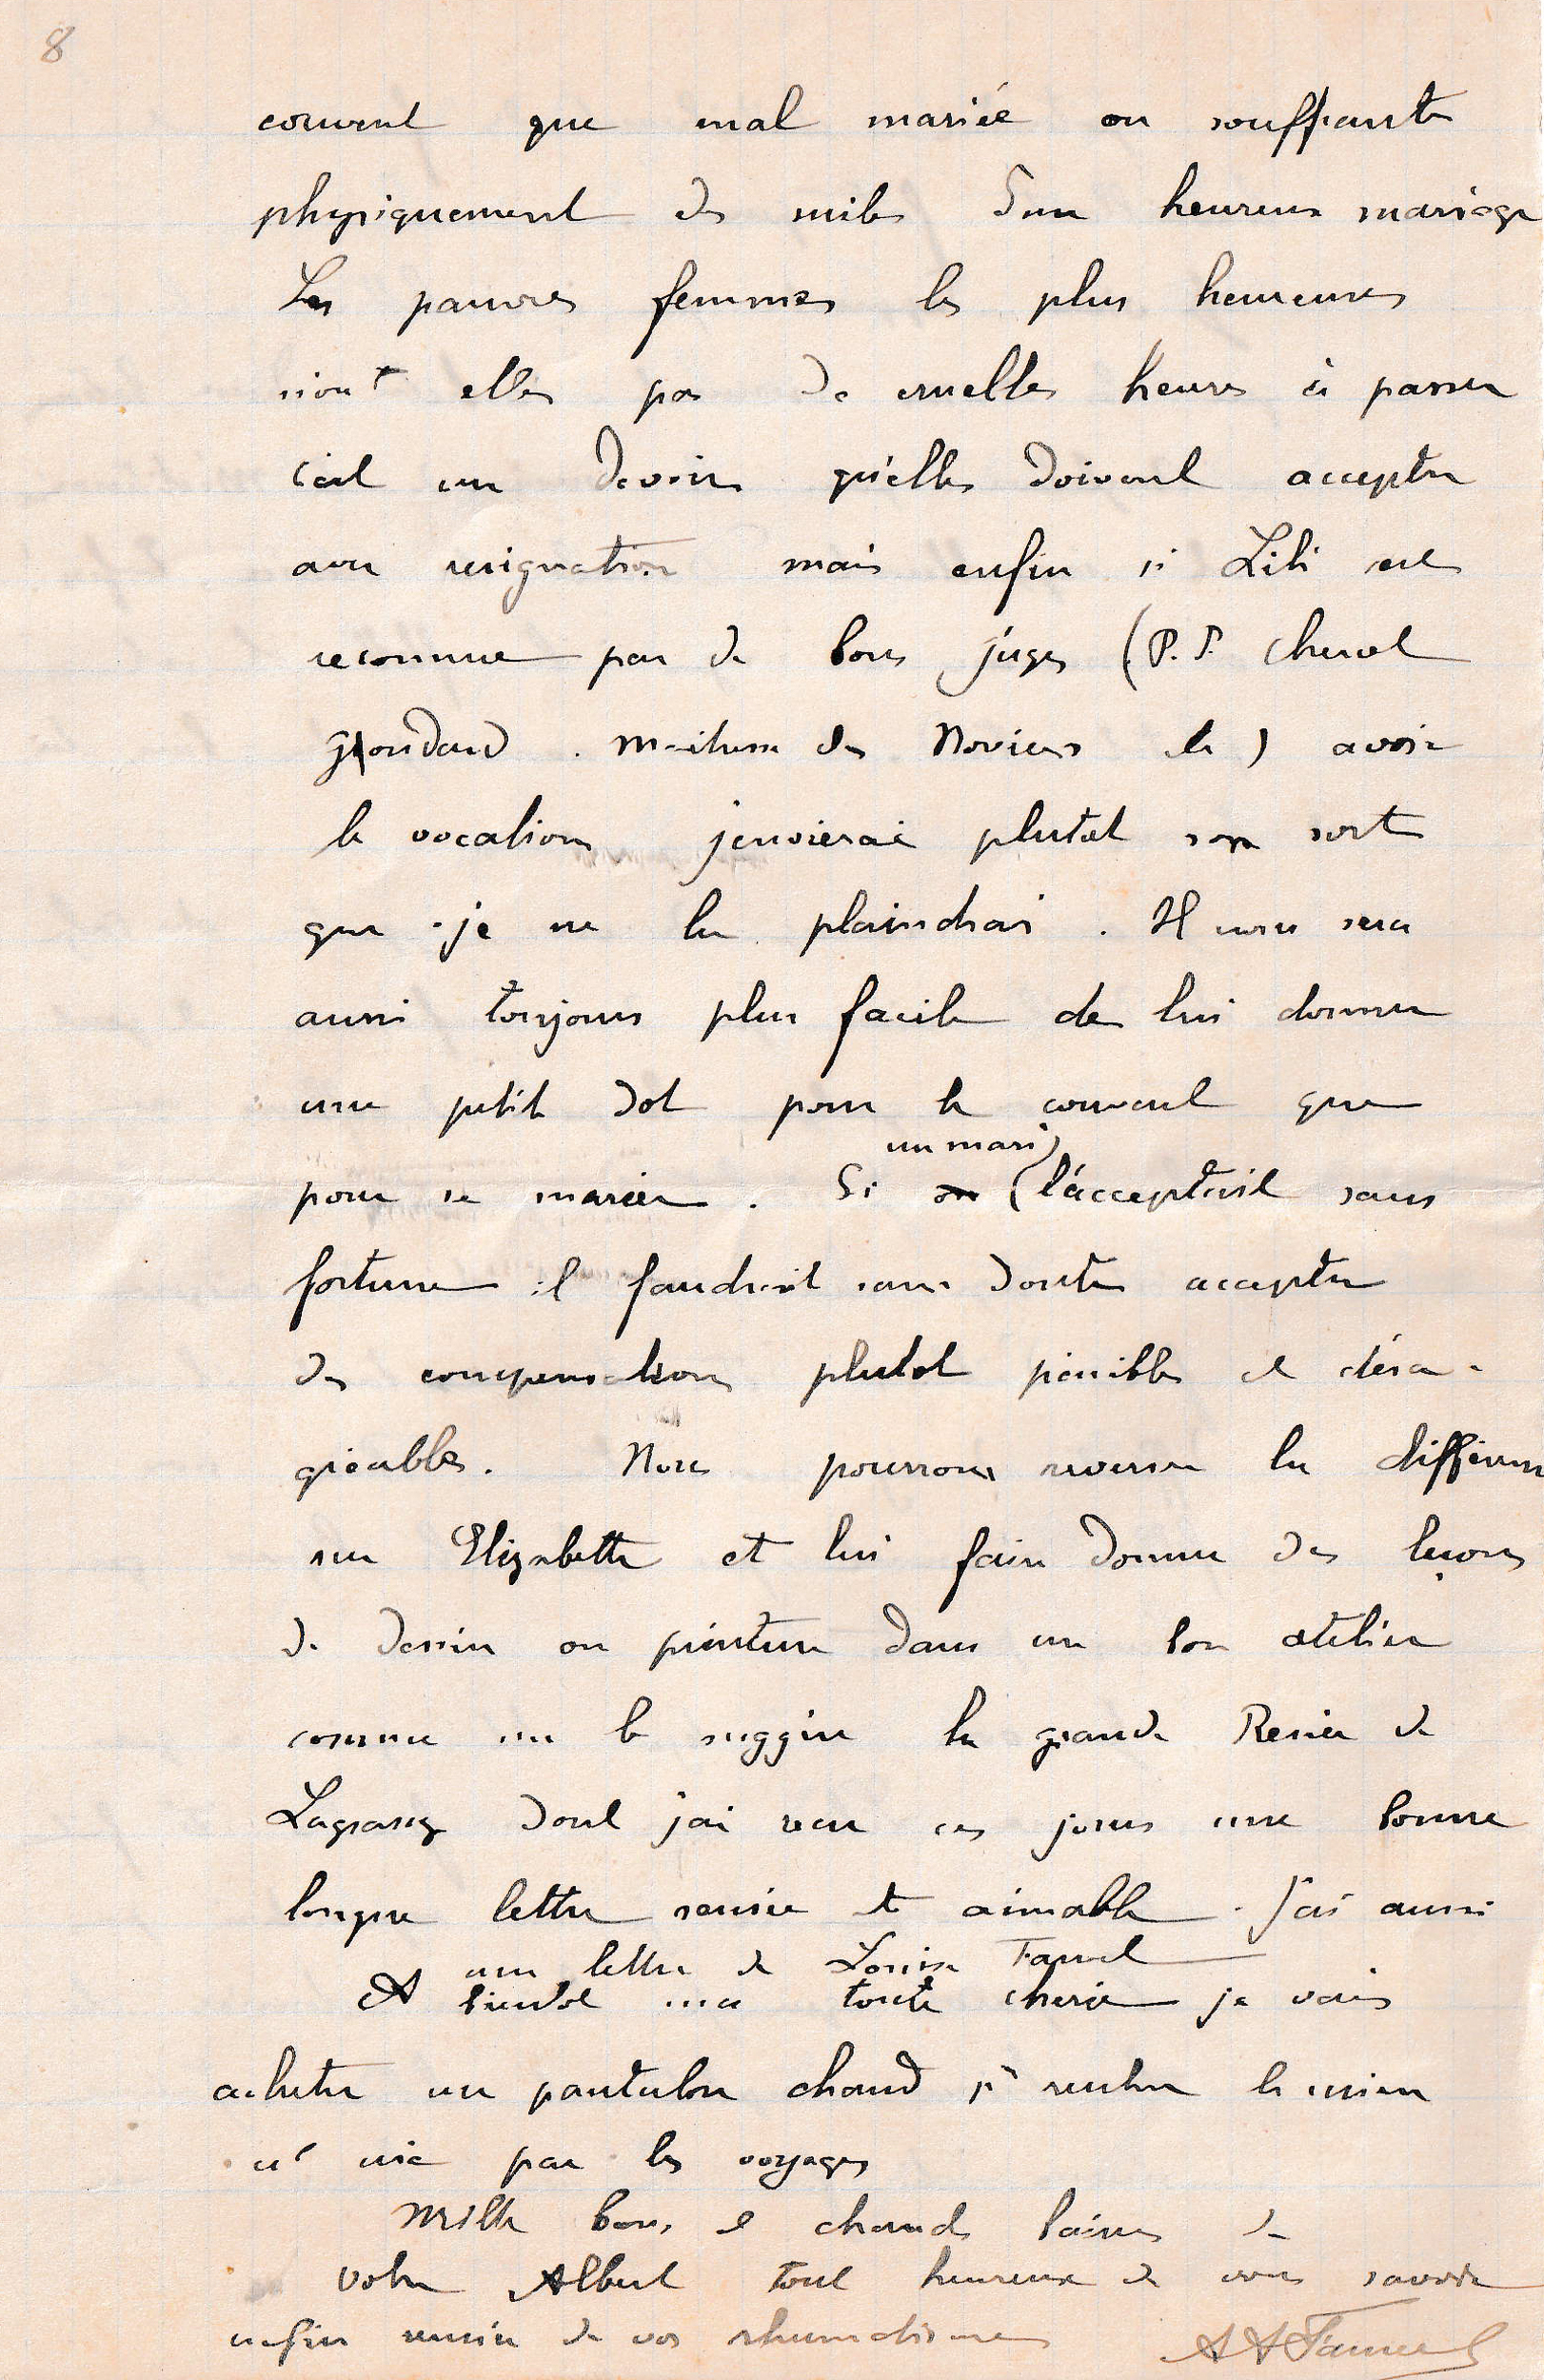 8
couvent que mal mariée ou souffrante
physiquement des suites d'un heureux mariage
Les pauvres femmes les plus heureuses
n'ont elles pas de cruelles heures à passer
c'est un devoir qu'elles doivent accepter
avec resignation mais enfin si Lili est
reconnue par de bons juges (P.P. Cheval
Maitresse des Novices etc) avoir
la vocation j'envierai plutot son sort
que je ne la plaindrai. Il nous sera
aussi toujours plus facile de lui donner
une petite dot pour le couvent que
un mari
pour se marier. Si (l'acceptait sans
fortune il faudrait sans doute accepter
des compensations plutot pénibles et désa-
gréables. Nous pourrons reverser la différence
sur Elizabette et lui faire donner des leçons
de dessin ou peinture dans un bon atelier
comme me le suggère la grande de
Lagrange dont j'ai recu ces jours une bonne
longue lettre sensée et aimable. J'ai aussi
une lettre de Louise Fanuel
A bientot ma toute cherie je vais
acheter un pantalon chaud si rentrer le mien
usé par les voyages
Mille bons et chauds baisers de
votre Albert tout heureux de vous savoir
enfin remise de vos rhumatismes